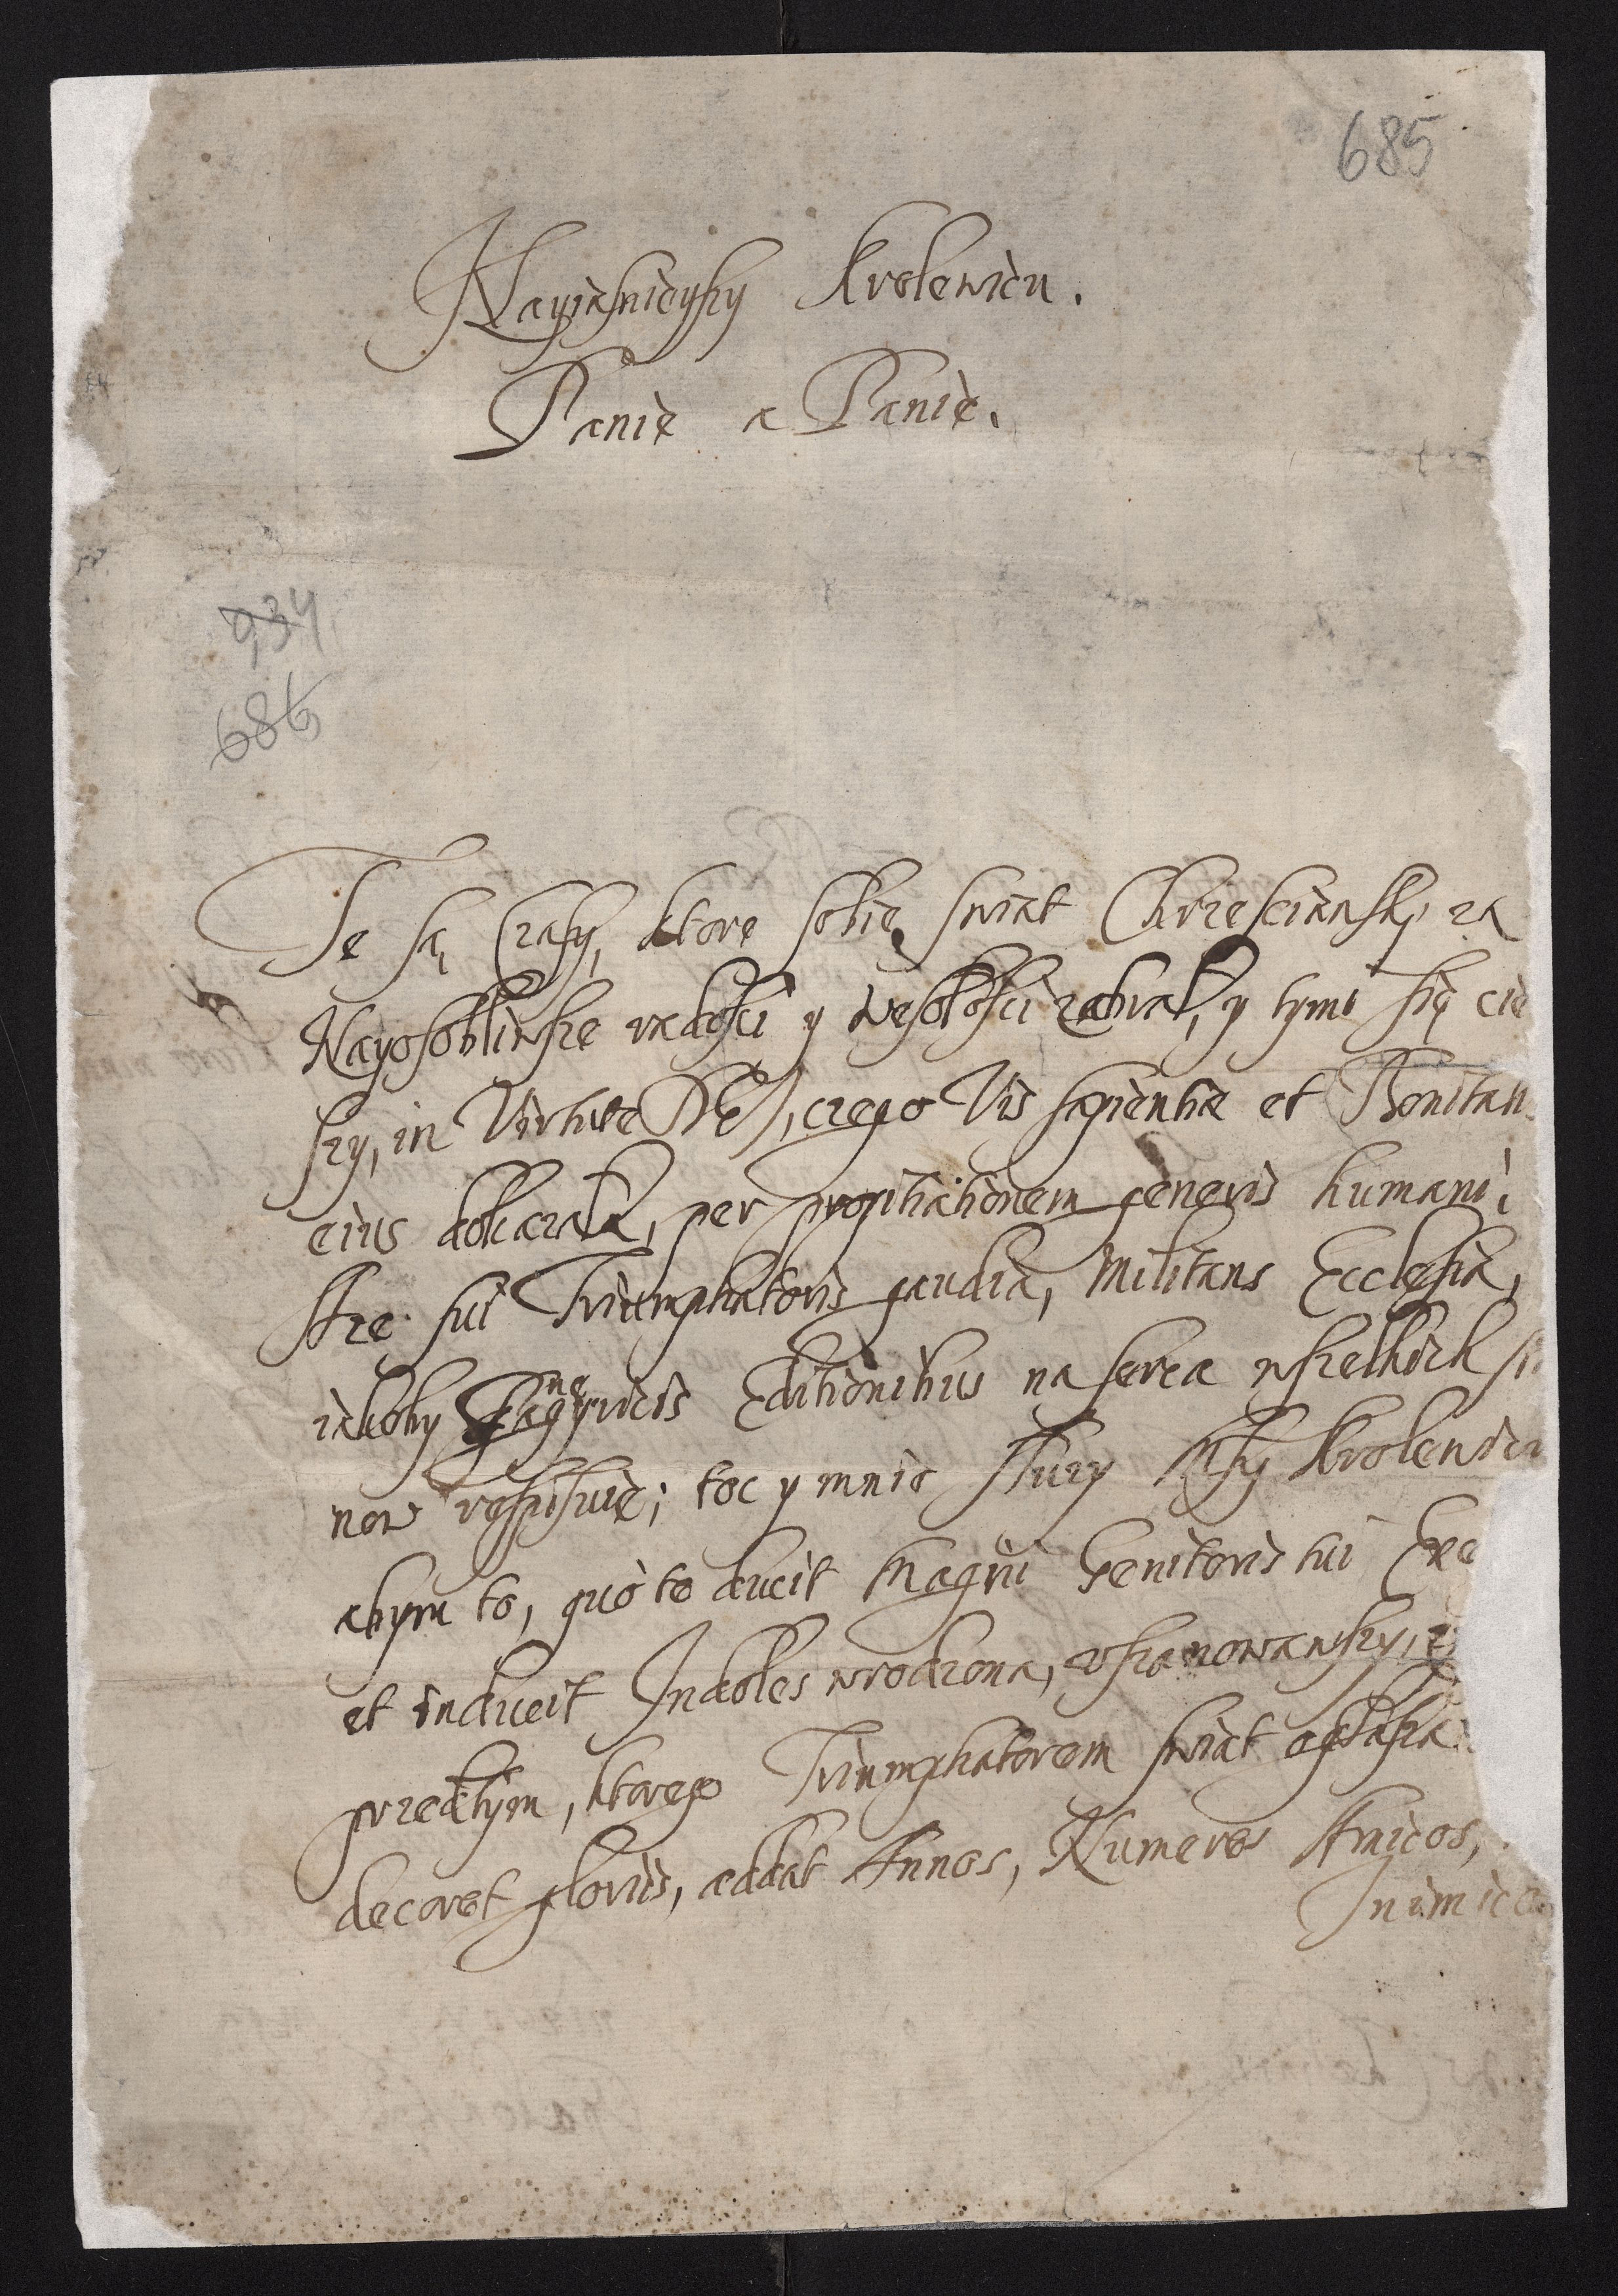 685
Nayiasnieyszy Krolewicu.
Panie a Panie.
934
686
Te są Czasy, ktore sobie swiat Chrzescianskị za
Nayosobliwsze radosci y wesołosci zabrał, y tymi się cie
szy, in Virtute DEI, czego Vis sapientiæ et Bonitatis
eius dokazała, per propitiationem generis humani;
Aze sui Triumphatoris gaudia, Militans Ecclesia,
iakoby Panegyricis Editionibus na serca wszelkich
now rospisuie; toc y mnie słuzy Msy Krolewicu
abym to, quo te ducit Magni Genitoris tui Exe
et inducit Indoles wrodzona, uszanowawszy,
przedtym, ktorego Triumphatorem swiat ogłasza
decoret gloriis, addat Annos, Numeros Amicos,
Inimico